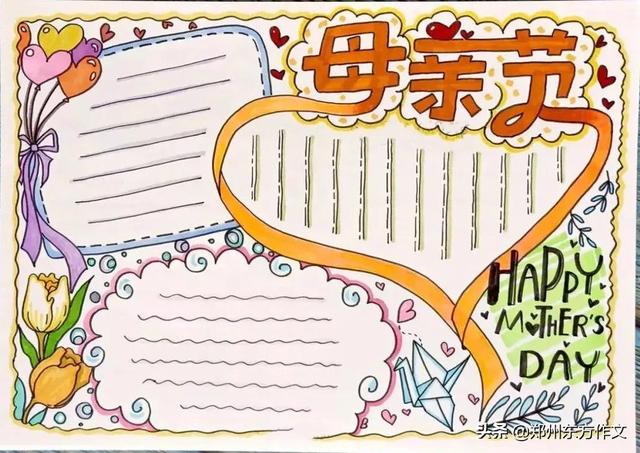 母亲节
HAPPY
MOTHER'S
DAY
头条 @郑州东方作文